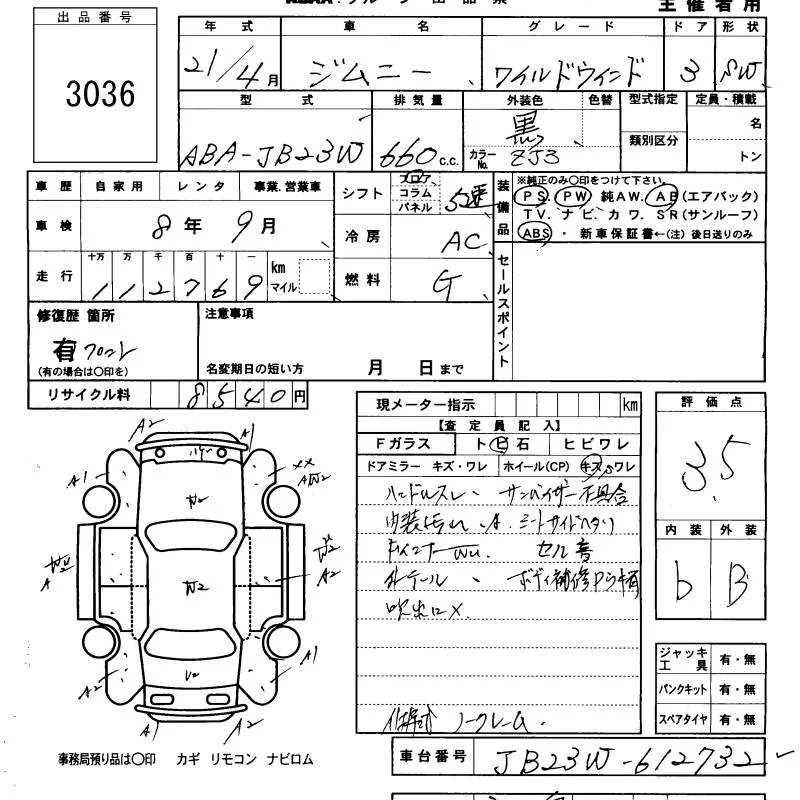 出品番号
3036
主催者用
年式 車名 グレード ドア 形状
21/4月 ジムニー ワイルドウインド 3 SW
型式 排気量 外装色 色替 型式指定 定員・積載
ABA-JB23W 660 c.c. 黒 類別区分 名
カラーNo. ZJ3 トン
車歴 自家用 レンタ 事業.営業車
車検 8年 9月
走行 十万 万 千 百 十 一
112769 km マイル
シフト フロア コラム パネル 5速
冷房 AC
燃料 G
装備品
※純正のみ〇印をつけて下さい。
PS. PW 純AW. AB (エアバック)
TV. ナビ. カワ. SR (サンルーフ)
ABS ・ 新車保証書←(注) 後日送りのみ
セールスポイント
修復歴 箇所
有 フロント
(有の場合は〇印を)
注意事項
名変期日の短い方 月 日まで
リサイクル料 8540円
現メーター指示 km
【査定員記入】
Fガラス トビ石 ヒビワレ
ドアミラー キズ・ワレ ホイール(CP) キズ.ワレ
ハンドルスレ、サンバイザー不具合
セル音
吹出口X
ノークレーム.
評価点
3.5
内装 外装
b B
ジャッキ工具 有・無
パンクキット 有・無
スペアタイヤ 有・無
A2 A1
A1 XX
W2
W2 W2
A A2
A1
A2 U2
A1 A2
事務局預り品は〇印 カギ リモコン ナビロム
車台番号 JB23W-612732